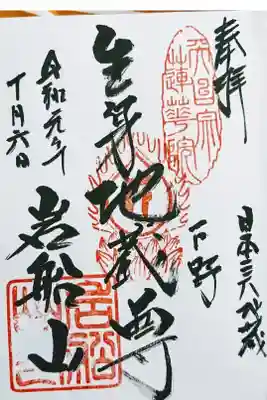 奉拝
日本三大地蔵
下野
天台宗
蓮華院
生身地蔵尊
岩船山
令和元年
十月六日